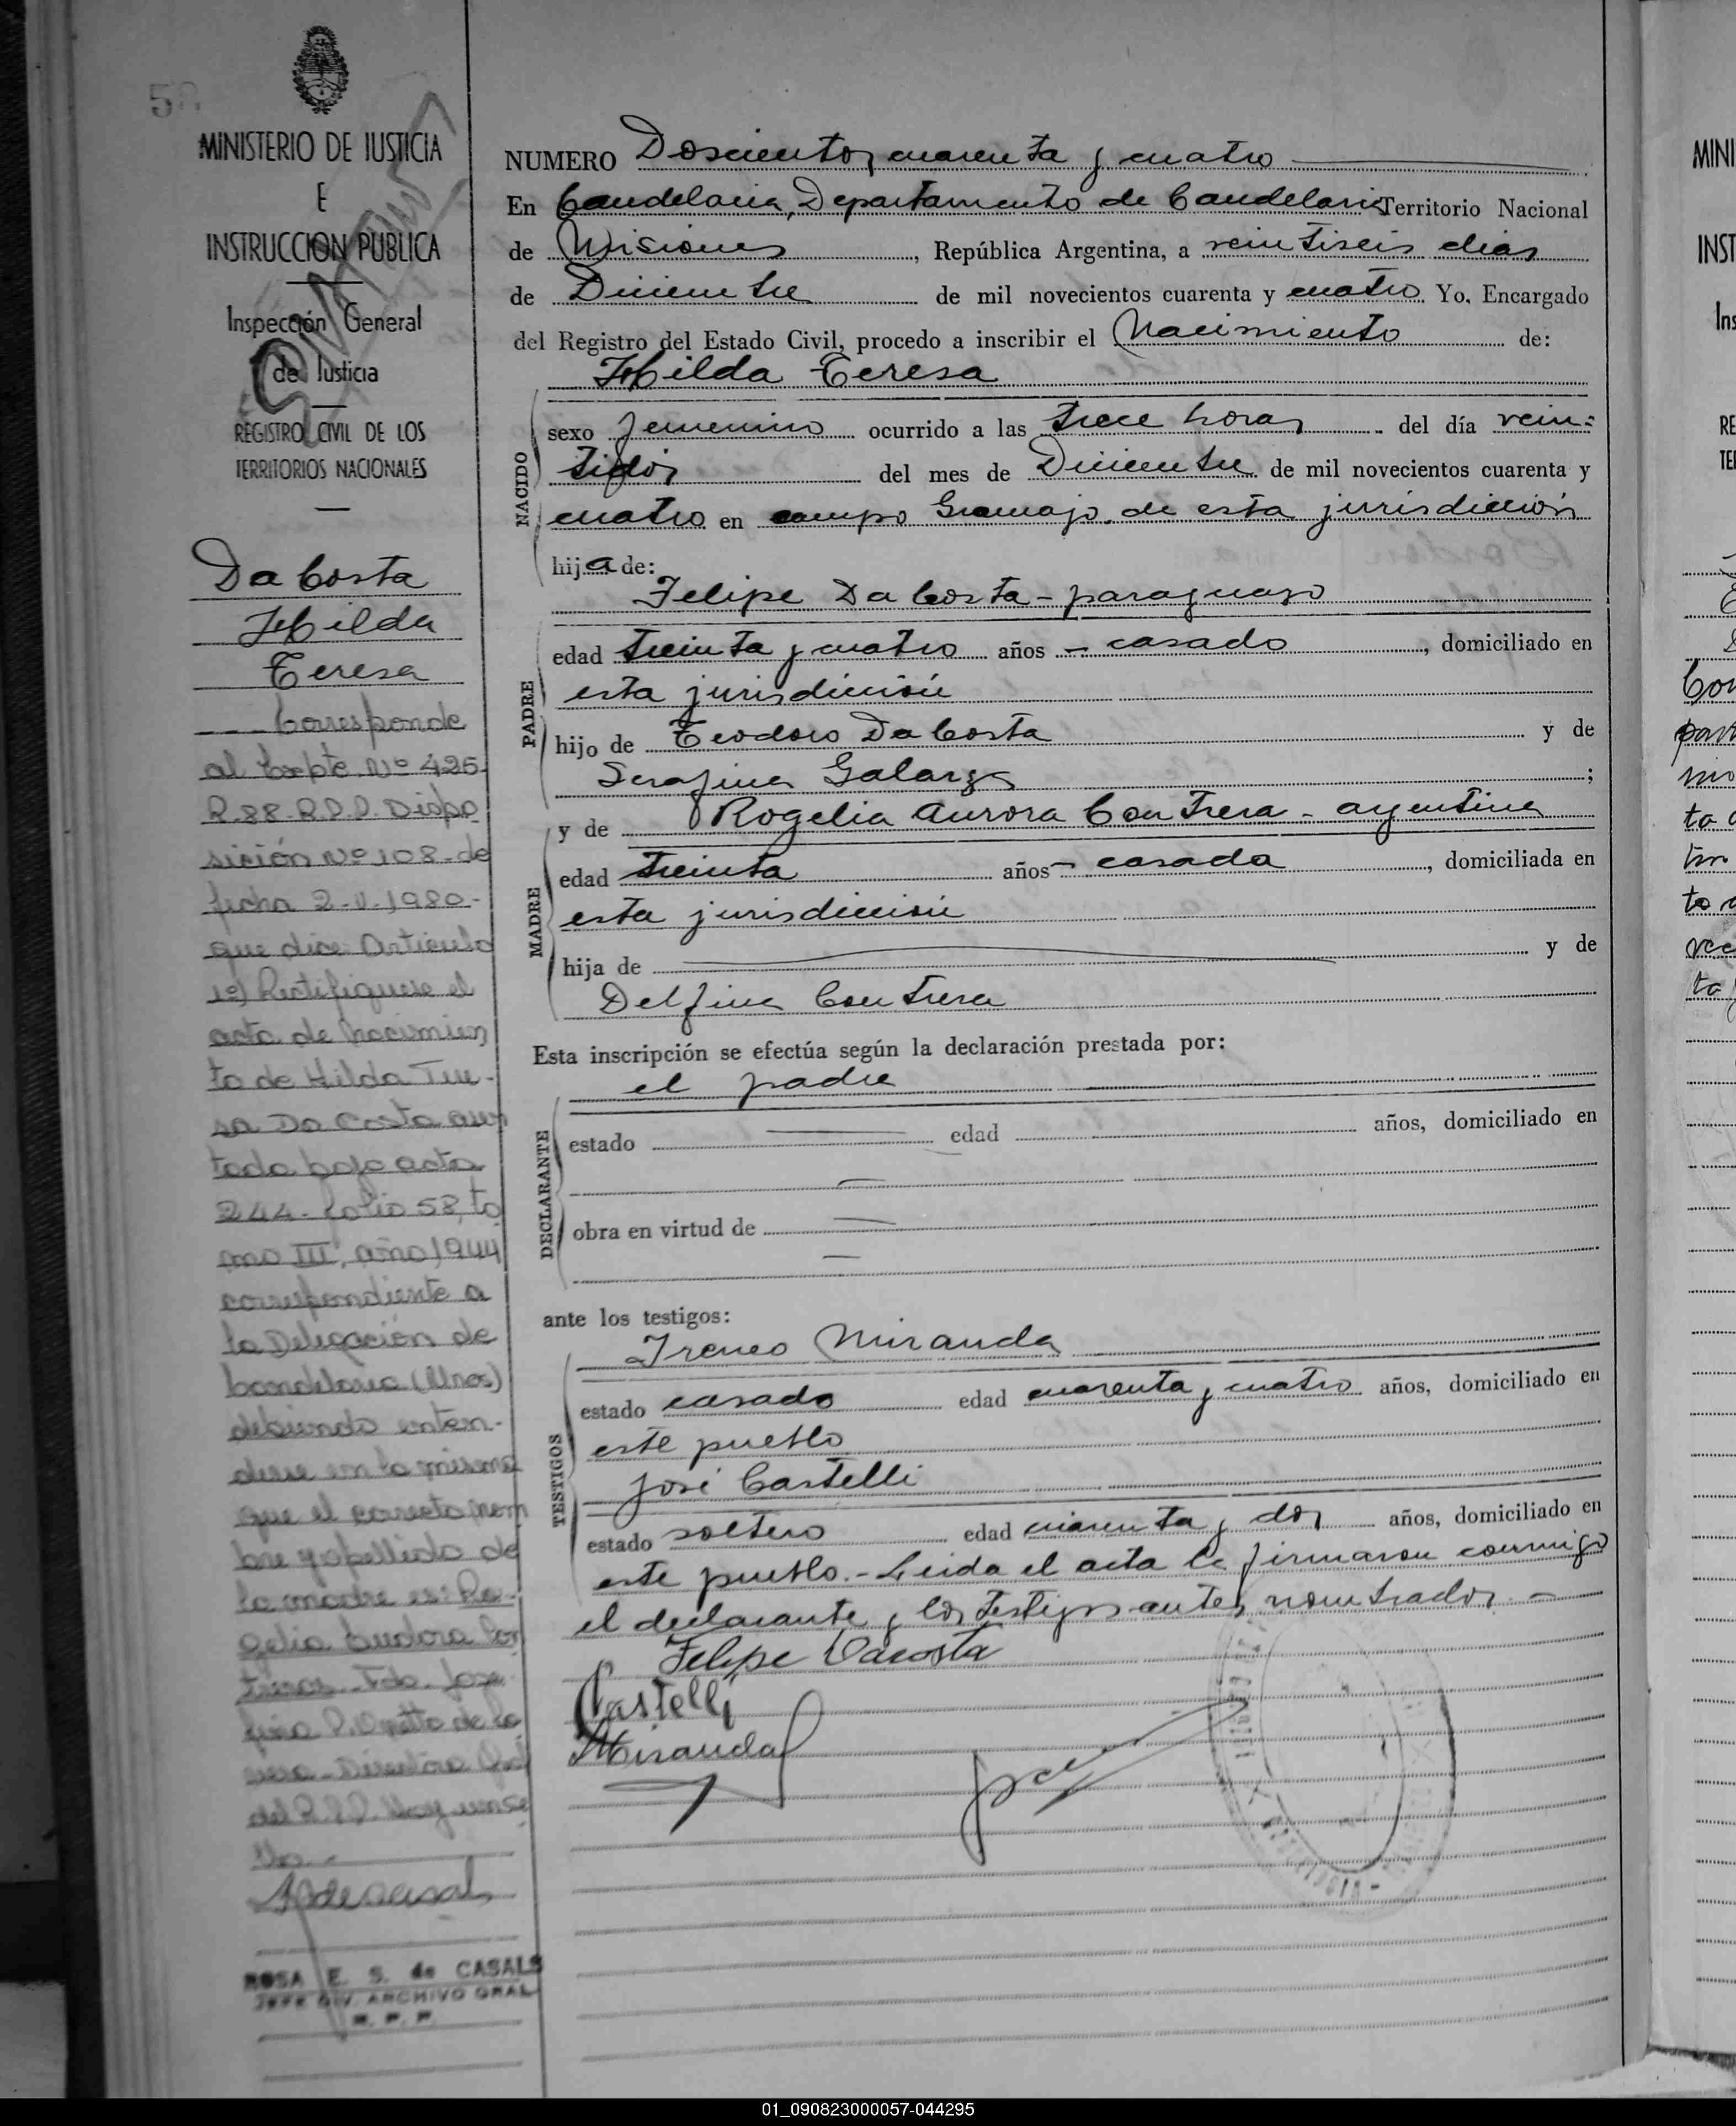 58
MINISTERIO DE JUSTICIA
E
INSTRUCCION PUBLICA
Inspección General
de Justicia
REGISTRO CIVIL DE LOS
TERRITORIOS NACIONALES
Da Costa
Hilda
Teresa
Corresponde
al Expte. Nº 425
R.88-R.P.P. Dispo
sición Nº 108-de
fecha 2-V-1980-
que dice: Artículo
1º) Rectifiquese el
acta de nacimien
to de Hilda Tere-
sa Da Costa asen
tada bajo acta
244-folio 58, to
mo III, año 1944
correspondiente a
la Delegación de
Candelaria (Mnes)
debiendo enten-
derse en la misma
que el correcto nom
bre y apellido de
la madre es: Ro-
gelia Eudora Con
treras- Fdo. Jose
fina
del R.P.P. Hay un se
llo.-
ROSA E. S. de CASALS
JEFE DIV. ARCHIVO GRAL
R. P. P.
NUMERO Doscientos cuarenta y cuatro
En Candelaria, Departamento de Candelaria Territorio Nacional
de Misiones, República Argentina, a veintiseis dias
de Diciembre de mil novecientos cuarenta y cuatro Yo, Encargado
del Registro del Estado Civil, procedo a inscribir el Nacimiento de:
Hilda Teresa
NACIDO
sexo femenino ocurrido a las trece horas del día vein=
tidós del mes de Diciembre de mil novecientos cuarenta y
cuatro en campo Gramajo de esta jurisdicción
hija de:
Felipe Da Costa - paraguayo
PADRE
edad treinta y cuatro años - casado, domiciliado en
esta jurisdicción
hijo de Teodoro Da Costa y de
Serafina Galarza;
y de Rogelia Aurora Contrera - argentina
MADRE
edad treinta años - casada, domiciliada en
esta jurisdicción
hija de y de
Delfina Contrera
Esta inscripción se efectúa según la declaración prestada por:
el padre
DECLARANTE
estado edad años, domiciliado en
obra en virtud de
ante los testigos:
Ireneo Miranda
TESTIGOS
estado casado edad cuarenta y cuatro años, domiciliado en
este pueblo
José Castelli
estado soltero edad cuarenta y dos años, domiciliado en
este pueblo.- Leida el acta la firmaron conmigo
el declarante y los testigos antes nombrados. -
Felipe Dacosta
Castelli
Miranda
01_090823000057-044295